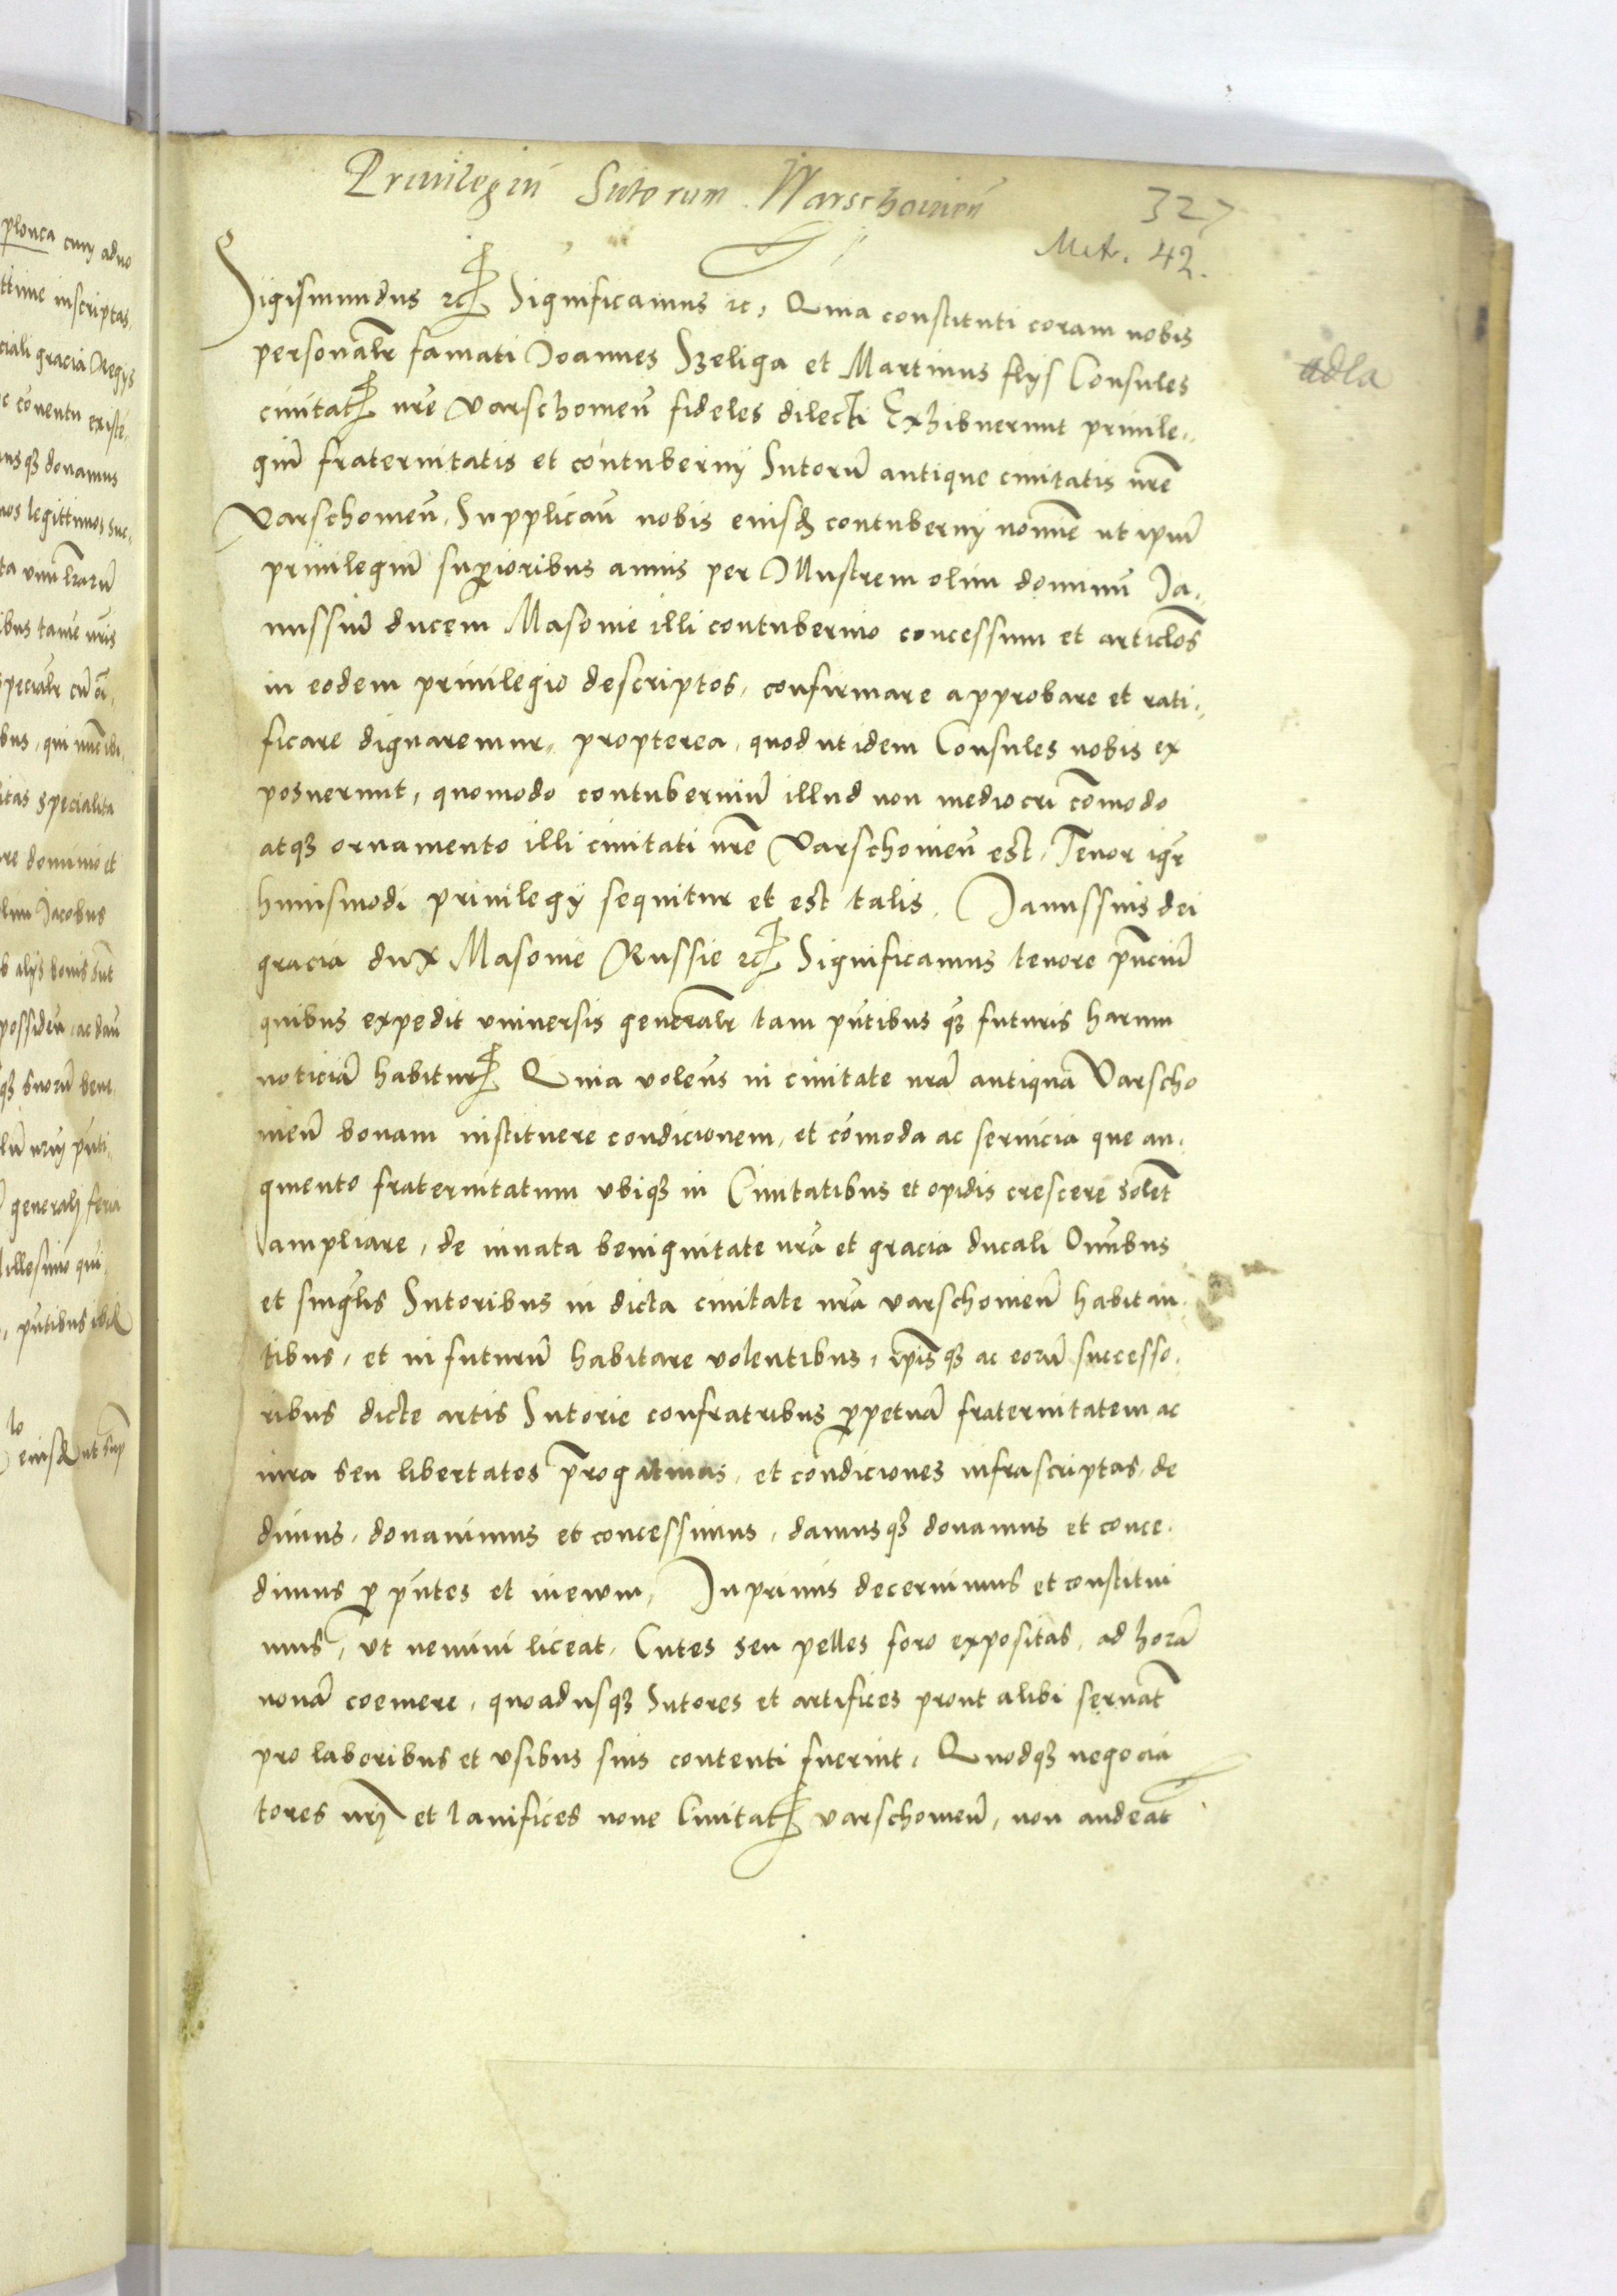 Priuilegiū Sutorum Warschouieñ
327
Met. 42.
Sigismundus ꝛcꝭ Significamus ꝛc, Quia constituti coram nobis
personalr̃ famati Joannes Szeliga et Martinus flys Consules
adla
ciuitatꝭ nr̃e Varschouieñ fideles dilecti Exhibuerunt priuile,,
giũ fraternitatis et contubernij Sutorũ antique ciuitatis nr̃e
Varschouieñ, Supplicaũ nobis eiusꝗ contubernij noĩne ut ipm̃
priuilegiũ suꝑioribus annis per Illustrem olim dominũ Ja,,
nussiũ ducem Masouie illi contubernio concessum et articlõs
in eodem priuilegio descriptos, confirmare approbare et rati,,
ficare dignaremur, propterea, quod ut idem Consules nobis ex
posuerunt, quomodo contuberniũ illud non mediocri cõmodo
atqꝫ ornamento illi ciuitati nr̃e Varschouieñ est, Tenor igr̃
huiusmodi priuilegij sequitur et est talis, Janussius dei
gracia dux Masouie Russie ꝛcꝭ Significamus tenore pñciũ
quibus expedit vniuersis generalr̃ tam pñtibus qꝫ futuris harum
noticiã habiturꝭ Quia volens in ciuitate nrã antiqua Varscho
uieñ bonam instituere condicionem, et cõmoda ac seruicia que au,
gmento fraternitatum vbiqꝫ in Ciuitatibus et opidis crescere solẽt
ampliare, de innata benignitate nrã et gracia ducali Om̃ibus
et singl̃is Sutoribus in dicta ciuitate nrã varschouieñ habitan,
tibus, et in futurũ habitare volentibus, ip̃isqꝫ ac eorũ successo,
ribus dicte artis Sutorie confratribus ꝑpetuã fraternitatem ac
iura seu libertates p̃rogatiuas, et condiciones infrascriptas, de
dimus, donauimus et concessimus, damusqꝫ donamus et conce,
dimus ꝑ pñtes et in ewm, Inprimis decernimus et constitui
mus, Vt nemini liceat, Cutes seu pelles foro expositas, ad horã
nonã coemere, quoadusqꝫ Sutores et artifices prout alibi seruãt
pro laboribus et vsibus suis contenti fuerint, Quodqꝫ negocia
tores nrĩ et lanifices noue Ciuitatꝭ varschouieñ, non audeãt